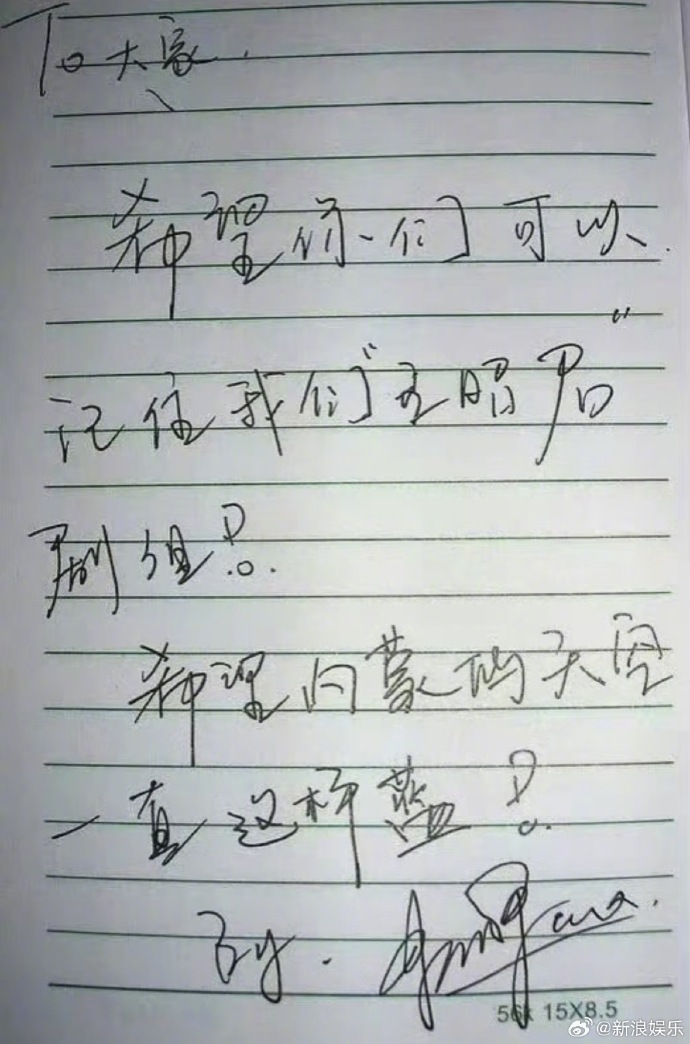 To 大家：
希望你们可以
记住我们“王昭君”
剧组！
希望内蒙的天空
一直这样蓝！
By.
56K 15X8.5
@新浪娱乐